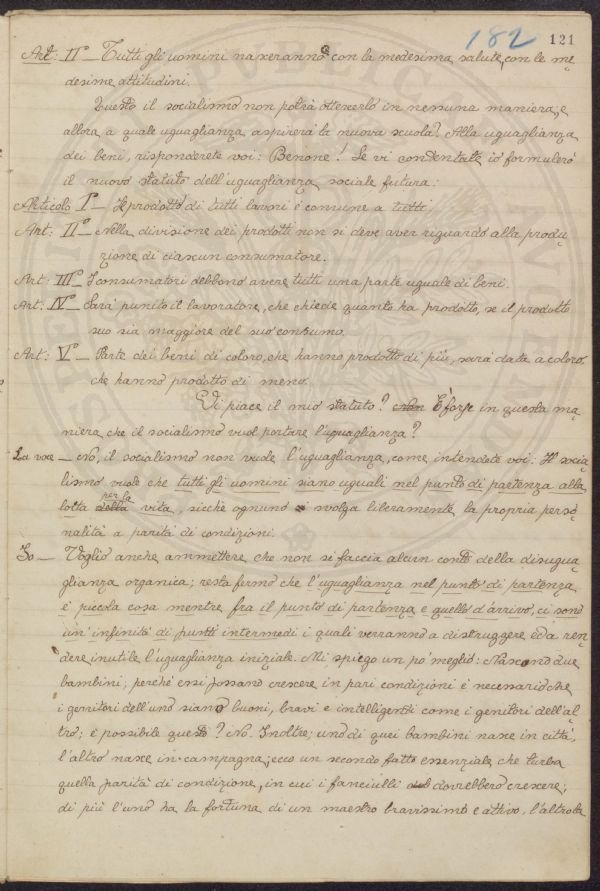 182 121
Art: II° — Tutti gli uomini nasceranno con la medesima salute, con le me
desime attitudini.
Questo il socialismo non potrà ottenerlo in nessuna maniera; e
allora a quale uguaglianza aspirerà la nuova scuola? Alla uguaglianza
dei beni, risponderete voi: Benone! Se vi contentate io formulerò
il nuovo statuto dell'uguaglianza sociale futura:
Articolo I° — Il prodotto di tutti lavori è comune a tutti
Art: II° — Nella divisione dei prodotti non si deve aver riguardo alla produ
zione di ciascun consumatore.
Art: III° — I consumatori debbono avere tutti una parte uguale di beni.
Art: IV° — Sarà punito il lavoratore, che chiede quanto ha prodotto, se il prodotto
suo sia maggiore del suo consumo.
Art: V° — Parte dei beni di coloro, che hanno prodotto di più, sarà data a coloro
che hanno prodotto di meno.
Vi piace il mio statuto? non È forse in questa ma
niera che il socialismo vuol portare l'uguaglianza?
La voce — No, il socialismo non vuole l'uguaglianza, come intendete voi: Il socia
lismo vuole che tutti gli uomini siano uguali nel punto di partenza alla
lotta della per la vita, sicchè ognuno svolga liberamente la propria perso
nalità a parità di condizioni.
Io — Voglio anche ammettere che non si faccia alcun conto della disugua
glianza organica; resta fermo che l'uguaglianza nel punto di partenza
è piccola cosa mentre fra il punto di partenza e quello d'arrivo, ci sono
un'infinità di punti intermedi i quali verranno a distruggere ed a ren
dere inutile l'uguaglianza iniziale. Mi spiego un po' meglio: Nascono due
bambini; perchè essi possano crescere in pari condizioni è necessario che
i genitori dell'uno siano buoni, bravi e intelligenti come i genitori dell'al
tro; è possibile questo? No. Inoltre; uno di quei bambini nasce in città,
l'altro nasce in campagna; ecco un secondo fatto essenziale che turba
quella parità di condizione, in cui i fanciulli dovrebbero crescere;
di più l'uno ha la fortuna di un maestro bravissimo e attivo, l'altro ha